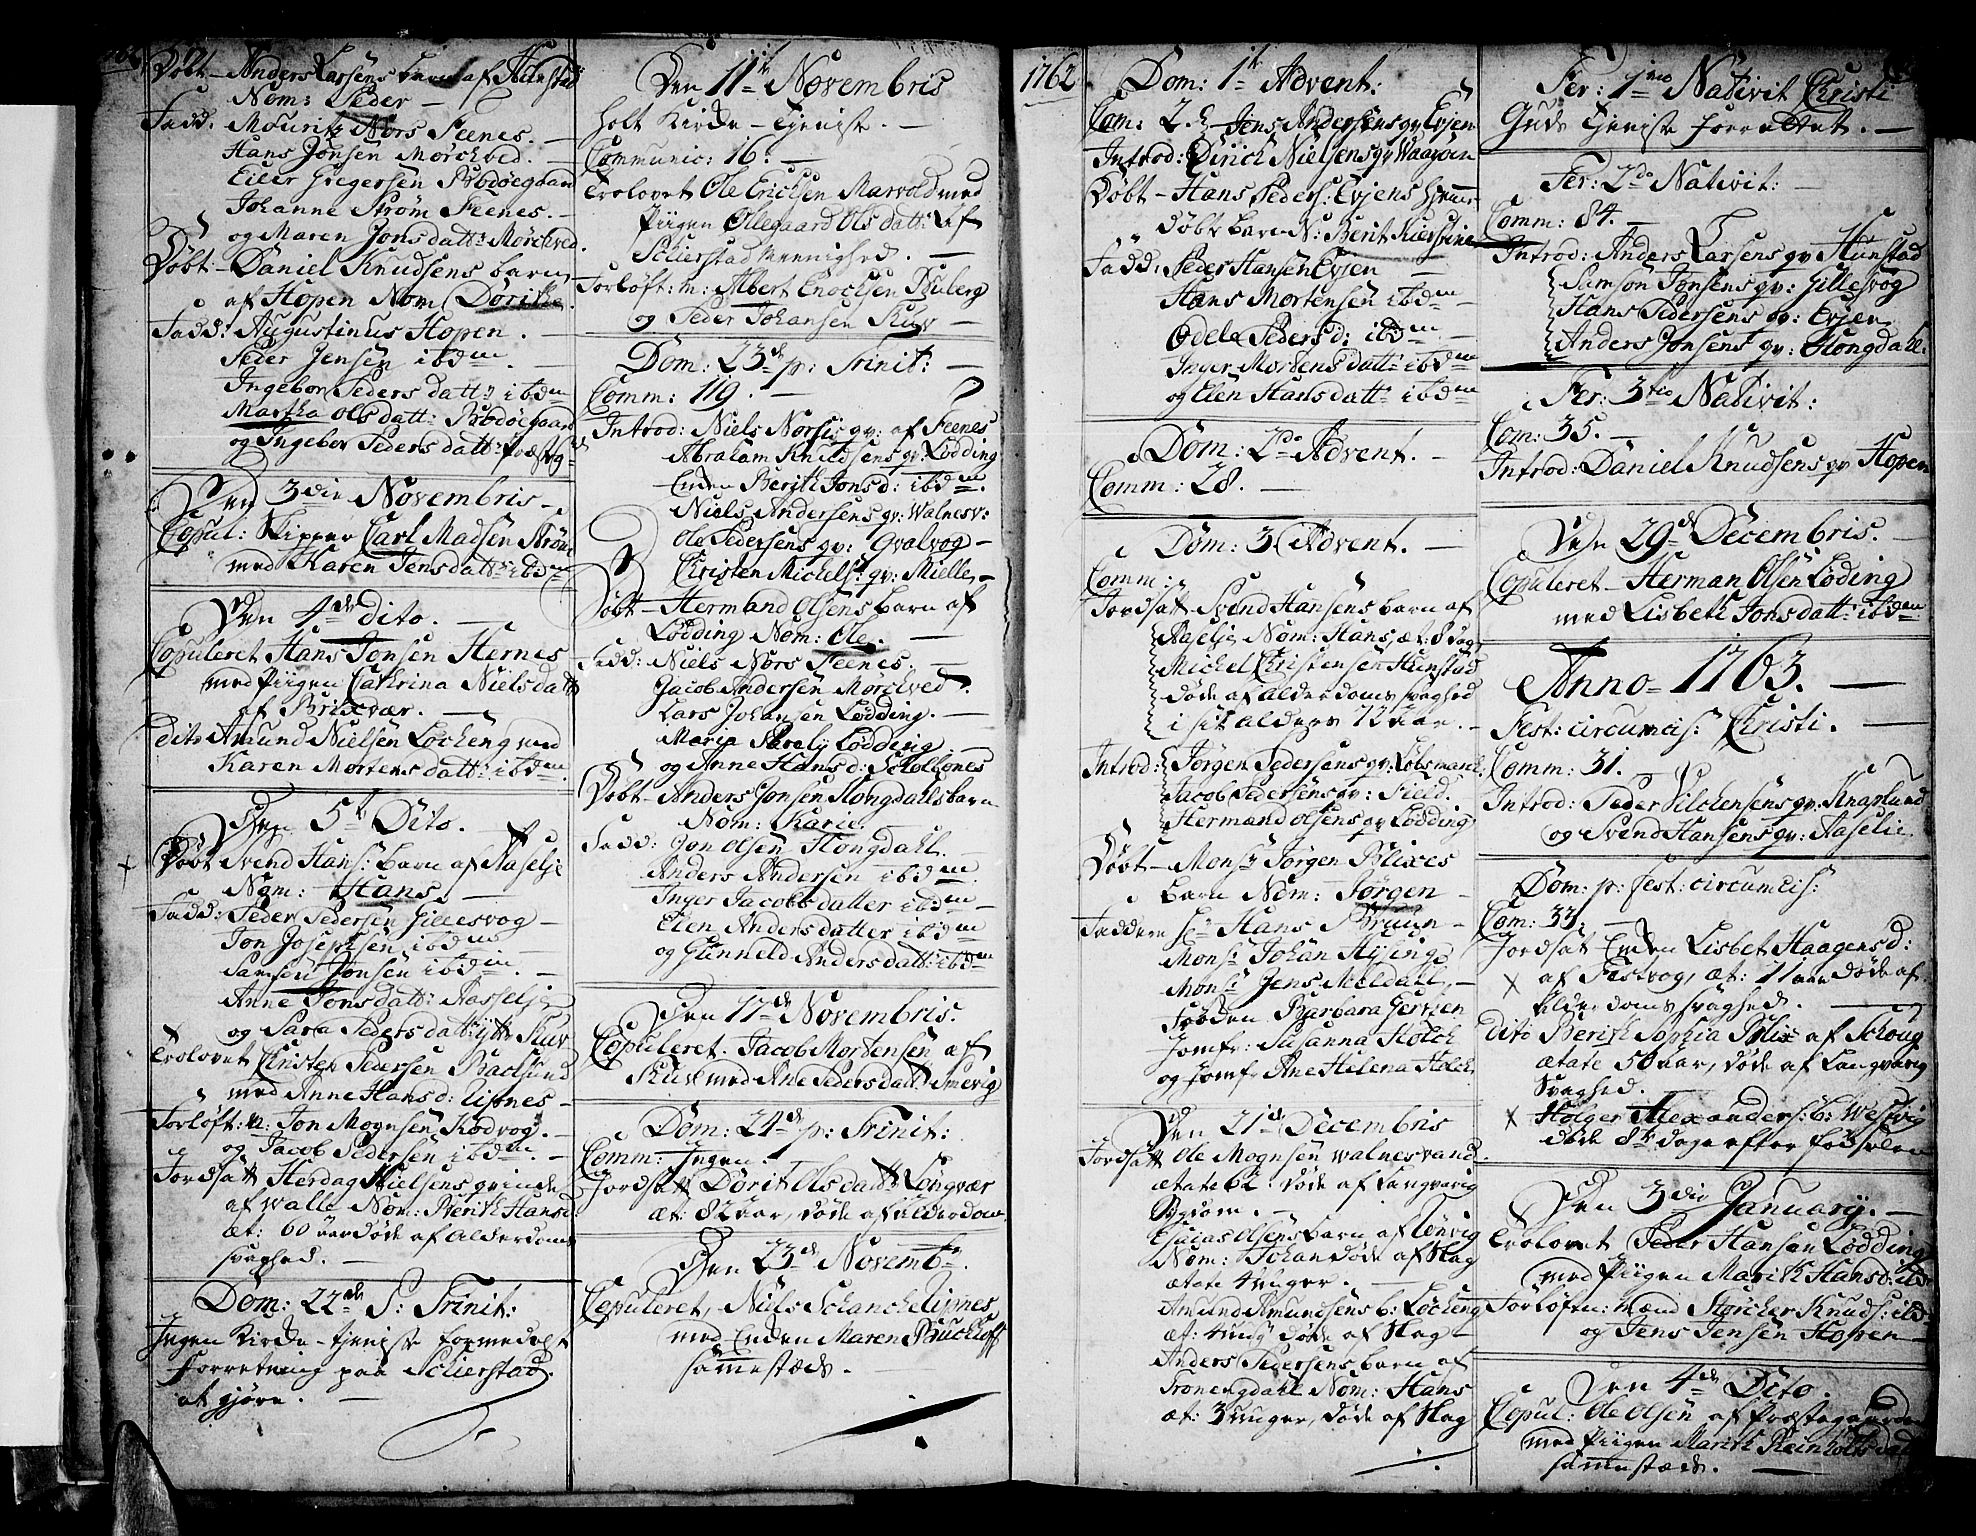 Döbt - Anders Larsens barn af Hunstad
Nom: Peder -
Fadd: Mouritz Nors Feenes. -
Hans Jonsen Mörchved. -
Eiler Gregersen Bodöegaard
Johanne Ström Feenes. -
og Maren Jonsdatt: Mörchved.
Döbt - Daniel Knudsens barn
af Hopen Nom: Dorithe.
Fadd: Augustinus Hopen. -
Peder Jensen ibdm. -
Ingebor Peders datt: ibdm
Martha Olsdatt: Bodöegaard
og Ingebor Pedersdatt: Præstg:
Den 3die Novembris -
Copul: Skipper Carl Madsen Ström
med Karen Jensdatt: ibdm
Den 4de dito. -
Copuleret Hans Jonsen Hernes
med Piigen Cathrina Nielsdatt
af Brixvær. -
dito Amund Nielsen Löcheng med
Karen Mortensdatt: ibdm.
Den 5te Dito.
Döbt Svend Hans: barn af Aaselje
Nom: Hans. -
Fadd: Peder Pedersen Gillesvog -
Jon Josephsen ibdm
Samsen Jonsen ibdm. -
Anne Jonsdatt: Aasselje
og Sara Pedersdatt: ytt: Kuv
Trolovet Christen Pedersen Badsund
med Anne Hansd: Lipnes -
Forlöft: m: Jon Mognsen Kodvog. -
og Jacob Pedersen ibdm. -
Jordsatt Herdag Nielsens qvinde
af Walle Nom: Berith Hansd:
æt: 60 aar döde af Alderdoms
svaghed. -
Dom: 22de P: Trinit:
Ingen Kirke-tjeniste formedelst
Forretning paa Schierstad
at gjöre. -
Den 11te Novembris
holt Kirke-Tjeniste. -
Communic: 16. -
Trolovet Ole Erichsen Marvold med
Piigen Ollegaard Olsdatt: af
Schierstad Menighed. -
Forlöft: m: Albert Enochsen Tuverg
og Peder Johansen Kuv -
Dom: 23de p: Trinit: -
Comm: 119. -
Introd: Niels Norsis qv: af Feenes
Abraham Knudsens qv: Lödding
Enken Berith Jonsd: ibdm.
Niels Andersens qv: Walnesv:
Ole Pedersens qv: Qvalvog -
Christen Michels: qv: Mielle -
Döbt - Hermand Olsens barn af
Lödding Nom: Ole. -
Fadd: Niels Nors Feenes. -
Jacob Andersen Mörchved.
Lars Johansen Lödding. -
Maria Sarali Lödding
og Anne Hansd: Schottones
Döbt - Anders Jonsen Hongdahls barn
Nom: Karie. -
Fadd: Jon Olsen Hongdahl.
Anders Andersen ibdm.
Inger Jacobsdatter ibdm -
Elen Andersdatter ibdm
og Gunneld Andersdatt: ibdm
Den 17de Novembris.
Copuleret. Jacob Mortensen af
Kuv med Ane Pedersdatt Smevig
Dom: 24de p: Trinit:
Comm: Ingen.
Jordsatt Dorit Olsdatt: Longvær
æt: 82 aar, döde af Alderdom.
Den 23de Novembr.
Copuleret, Niels Schanche Lipnes
med Enken Maren Buchhoff
sammestæds. -
1762
Dom: 1te Advent:
Com: 2. Jens Andersens qv Evjen
Introd: Dirich Nielsens qv Waagöen
Döbt - Hans Peders: Evjens hjemme-
döbt barn N: Berit Kierstine
Fadd: Peder Hansen Evjen -
Hans Mortensen ibdm -
Odele Pedersd: ibdm -
Inger Mortensdatt: ibdm
og Elen Hansdatt: ibdm
Dom: 2do Advent. -
Comm: 28. -
Dom: 3. Advent. -
Comm:
Jordsatt Svend Hansens barn af
Aaselje Nom: Hans, æt: 8 dag
Michel Christensen Hunstad
döde af Alderdoms svaghed
i sit alders 72 aar. -
Introd: Jörgen Pedersens qv: Löbsmark
Jacob Pedersens qv: Field.
Hermand Olsens qv Lödding
Döbt - Monsr Jörgen Blixes
barn Nom: Jörgen -
Faddere Sr Hans Bruun -
Monsr Johan Hysing
Monsr Jens Meldall, -
Froken Barbara Gertsen
Jomfr: Susanna Holch
og Jomfr Ane Helena Holch
Den 21de Decembris
Jordsatt Ole Mognsen Walnesvand.
ætate 62. döde af Langvarig
Sygdom. -
Esaias Olsens barn af Tenvig
Nom: Johan döde af Slag
ætate 4 uger. -
Amund Amundsens b: Löcheng
æt: 4 ug döde af Slag -
Anders Pedersens barn af
Tronengdahl Nom: Hans
æt: 3 uuger, döde af Slag
Fer: 1mo Nativit Christi
Guds Tjeniste Forrettet. -
Fer: 2do Nativit: -
Comm: 84. -
Introd: Anders Larsens qv Hunstad
Samson Jonsens qv: Gillesvog
Hans Pedersens qv: Evjen
Anders Jonsens qv: Hongdahl.
Fer: 3tio Nativit:
Com: 35. -
Introd: Daniel Knudsens qv Hopen
Den 29de Decembris. -
Copuleret - Herman Olsen Löding
med Lisbeth Jonsdatt: ibdm
Anno 1763. -
Fest: circumcis: Christi. -
Comm: 31. -
Introd: Peder Vilchensens qv: Knaplund
og Svend Hansens qv: Aaselie
Dom: p: fest: circumcis:
Com: 33; -
Jordsat Enken Lisbet Haagensd:
af Festvog, æt: 71 aar döde af
Alderdoms svaghed. -
Dito Berith Sophia Blix af Schoug
ætate 50 aar, döde af Langvarig
Svaghed.
Holger Alexanders: b: Westvig
döde 8te dage efter födselen
Den 3die Januarij. -
Trolovet Peder Hansen Lödding
med Piigen Marith Hansd: ibd:
Forlöftn: mænd Störcher Knuds: ibd:
og Jens Jensen Hopen -
Den 4de Dito.
Copul: Ole Olsen af Præstegaarden
med Piigen Marith Reinholtsdatt
sammestæds. -